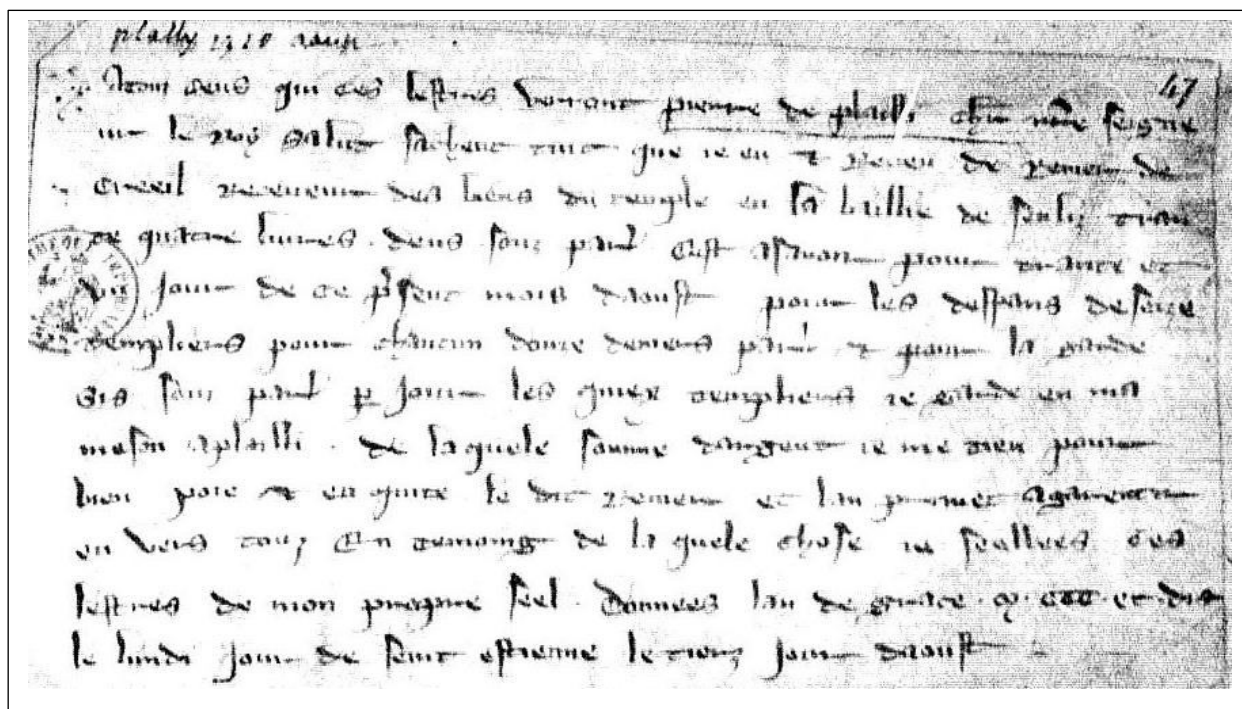 plally 1310 aoust
47
A touz ceus qui ces lestres verront pierre de plailli chlr nre seigne
ur le roy salut sachent tuit que ie eu & receu de renier de
creeil receveur des biens du temple en la baillie de senliz tran
te quatre livres deus souz par. cest asavoir pour trante et
un jour de ce present mois daoust pour les despans de seize
templiers pour chacun douze deniers par. & pour la garde
sis souz par. par jour les quiex templiers ie garde en ma
meson a plailli . de laquele somme dargent ie me tieu pour
bien paie & en quite le dit renier et lan promet a garentir
en vers touz En temoing de la quele chose ie seellees ces
lestres de mon propre seel . Donnees lan de grace . M . CCC et dis
le lundi jour de seint estienne le tierz jour daoust